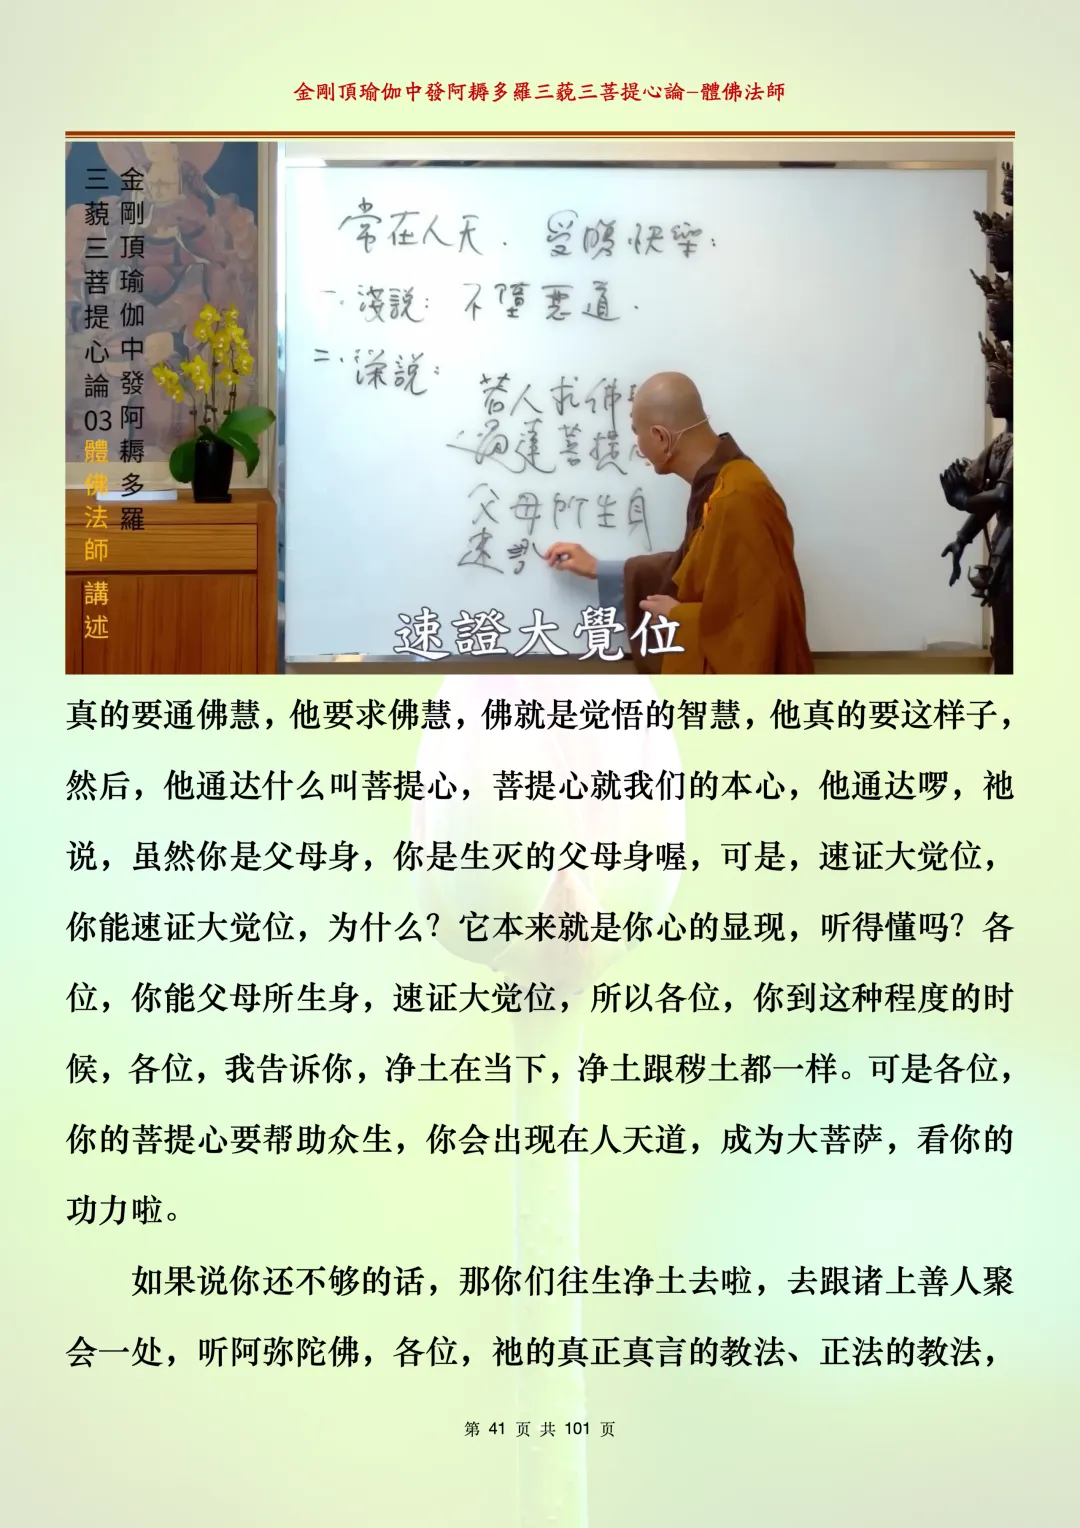 金剛頂瑜伽中發阿耨多羅三藐三菩提心論–體佛法師
金剛頂瑜伽中發阿耨多羅
三藐三菩提心論03體佛法師 講述
常在人天．受勝快樂：
一．淺說：不墮惡道．
二．深說：
若人求佛
通達菩提
父母所生身
速證
速證大覺位
真的要通佛慧，他要求佛慧，佛就是觉悟的智慧，他真的要这样子，
然后，他通达什么叫菩提心，菩提心就我们的本心，他通达啰，祂
说，虽然你是父母身，你是生灭的父母身喔，可是，速证大觉位，
你能速证大觉位，为什么？它本来就是你心的显现，听得懂吗？各
位，你能父母所生身，速证大觉位，所以各位，你到这种程度的时
候，各位，我告诉你，净土在当下，净土跟秽土都一样。可是各位，
你的菩提心要帮助众生，你会出现在人天道，成为大菩萨，看你的
功力啦。
如果说你还不够的话，那你们往生净土去啦，去跟诸上善人聚
会一处，听阿弥陀佛，各位，祂的真正真言的教法、正法的教法，
第 41 页 共 101 页